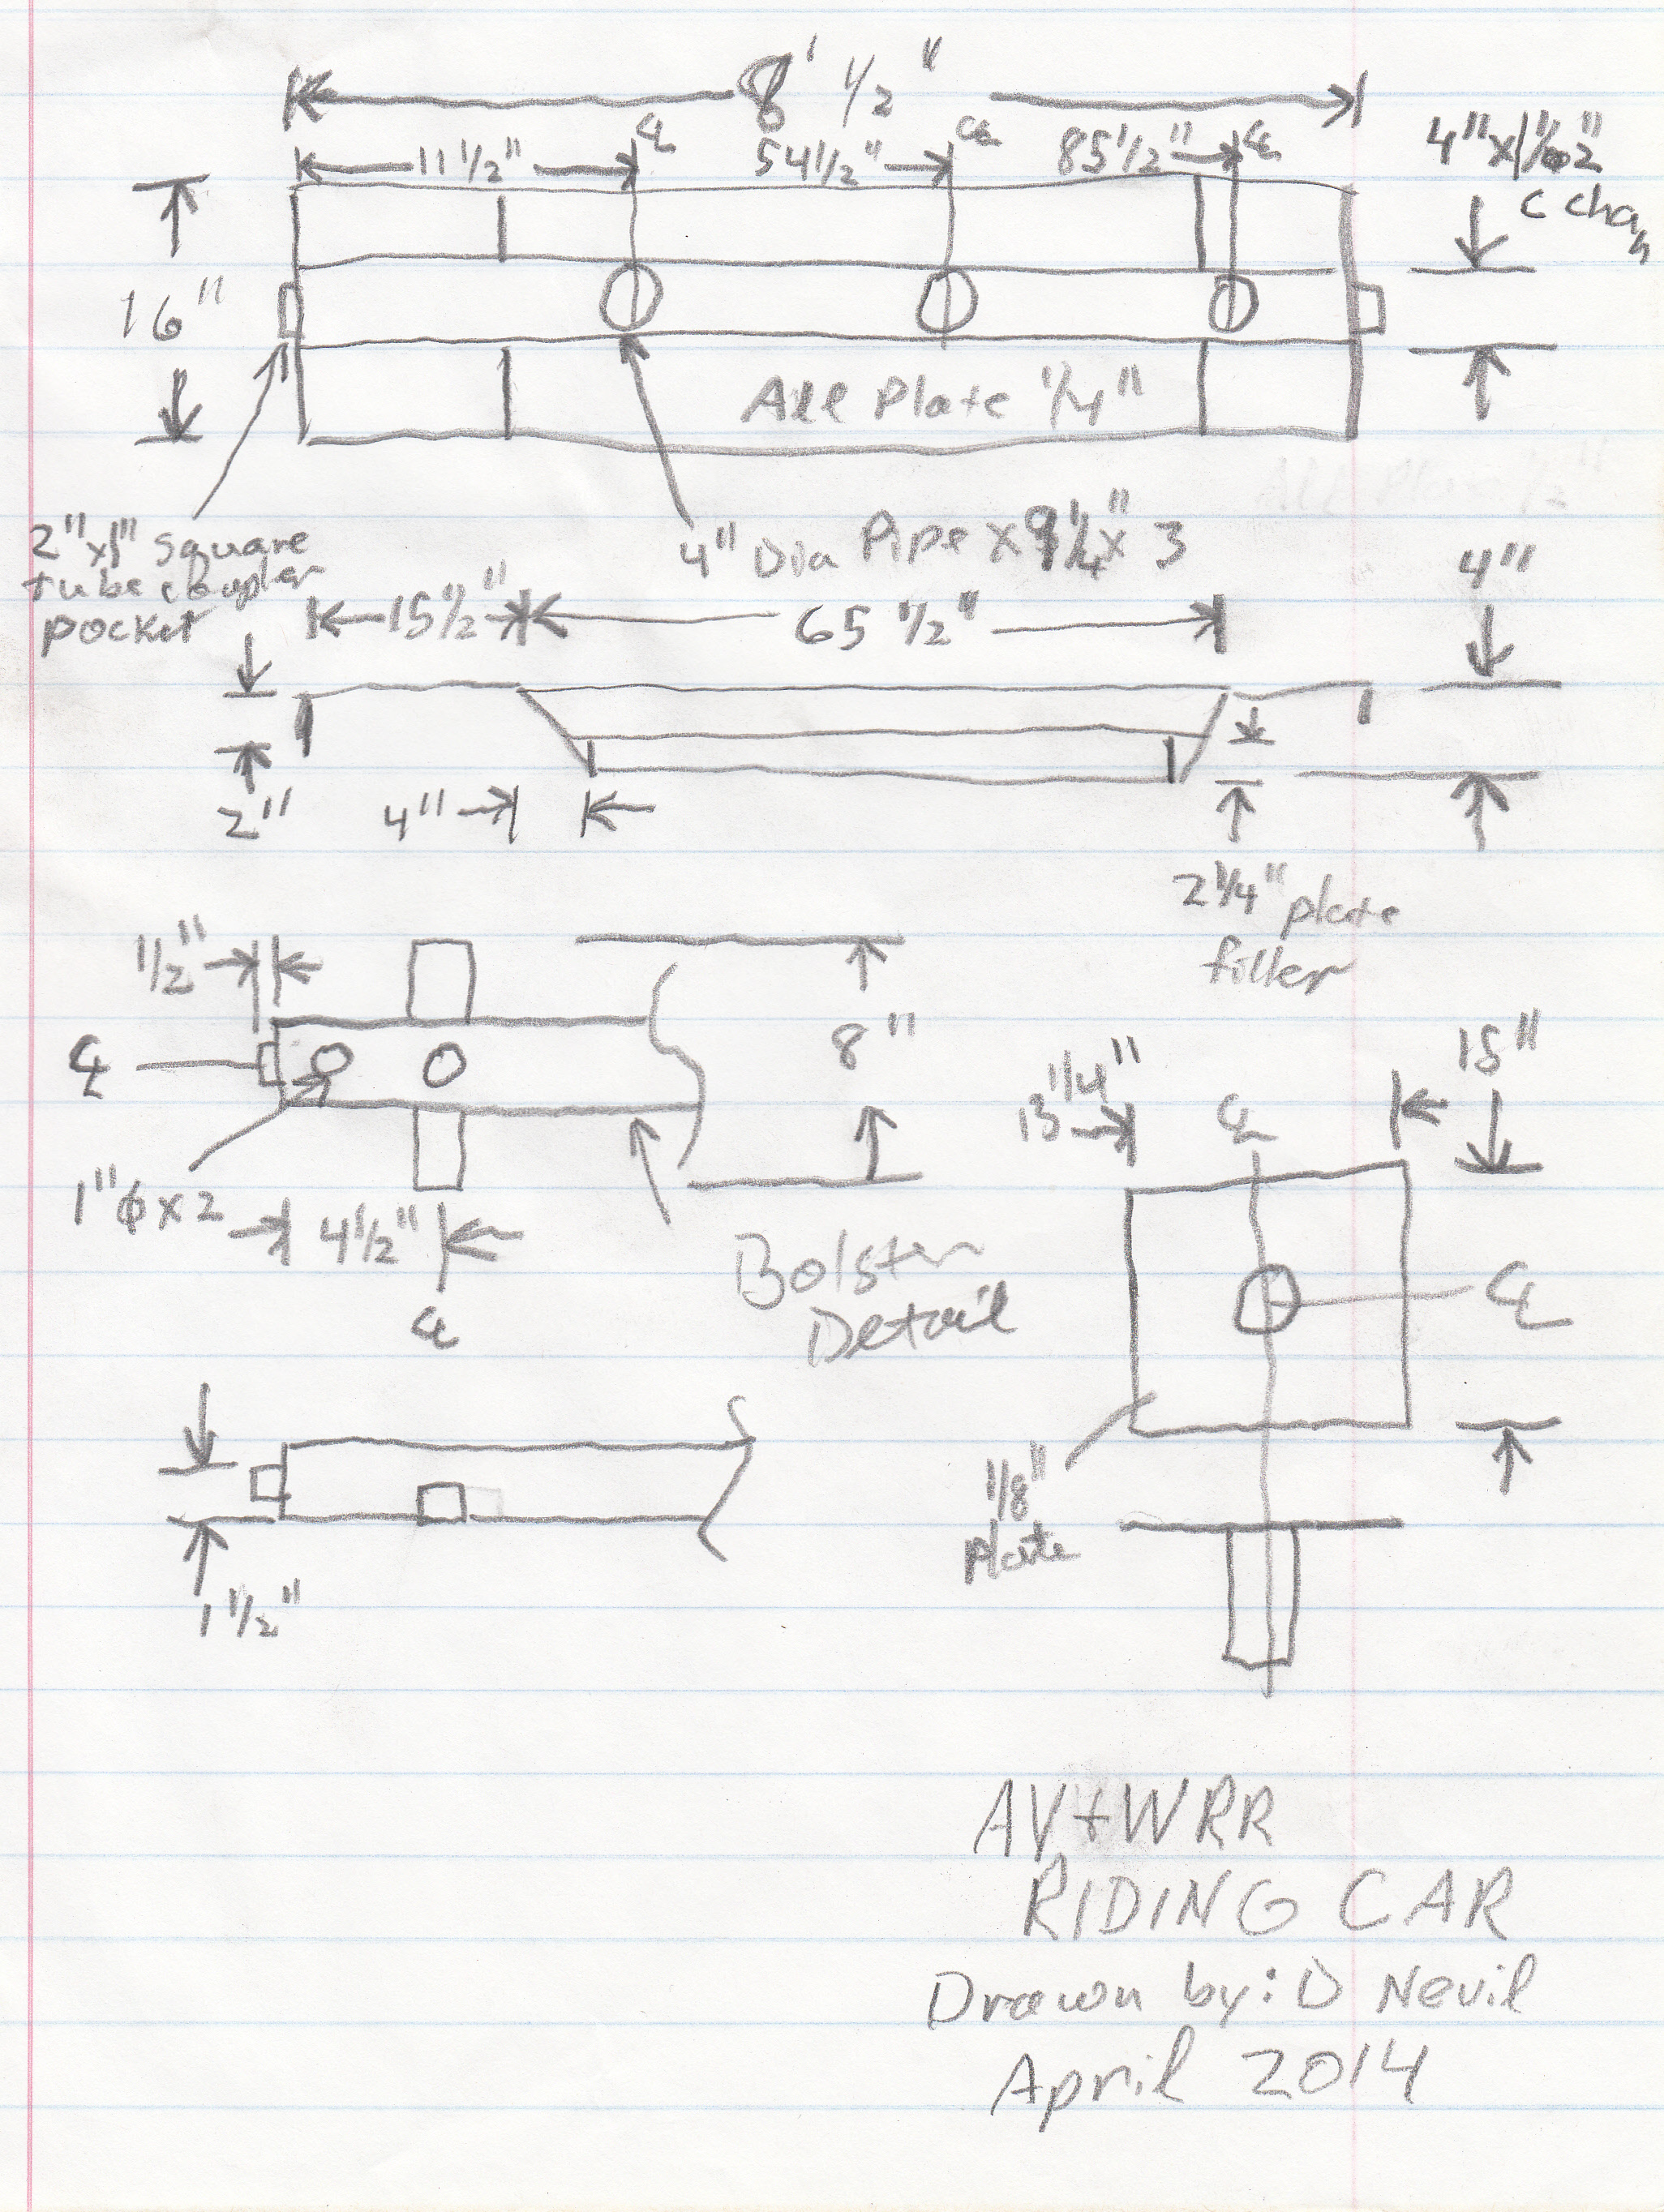 8' 1/2"
11 1/2" ℄ 54 1/2" ℄ 85 1/2" ℄
C Chan
16"
All Plate 1/4"
2"x1" square
tube coupler
pocket
4" Dia Pipe x 9 1/4" x 3
15 1/2" 65 1/2" 4"
2"
4"
2 1/4" plate
filler
1/2"
℄
8"
1" ϕ x 2
4 1/2"
℄
Bolster
Detail
13 1/4" ℄ 15"
℄
1/8"
plate
1 1/2"
AV+WRR
RIDING CAR
Drawn by: D Nevil
April 2014